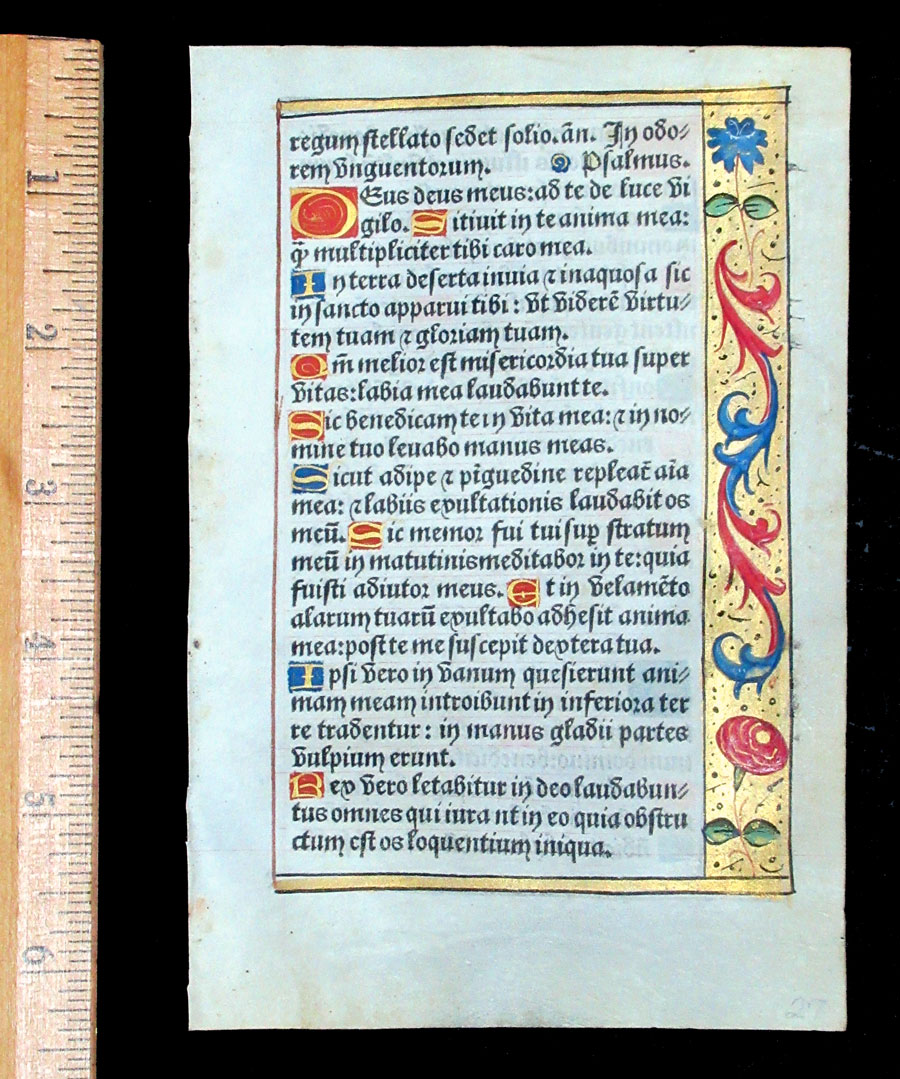 regum stellato sedet solio. añ. In odo⸗
rem vnguentorum. Psalmus.
DEus deus meus: ad te de luce vi
gilo. Sitiuit in te anima mea:
q̃ multipliciter tibi caro mea.
In terra deserta inuia ⁊ inaquosa sic
in sancto apparui tibi: vt viderẽ virtu⸗
tem tuam ⁊ gloriam tuam.
Qm̃ melior est misericordia tua super
vitas: labia mea laudabunt te.
Sic benedicam te in vita mea: ⁊ in no⸗
mine tuo leuabo manus meas.
Sicut adipe ⁊ pĩguedine repleat̃ aĩa
mea: ⁊ labiis exultationis laudabit os
meũ. Sic memor fui tui sup̱ stratum
meũ in matutinis meditabor in te: quia
fuisti adiutor meus. Et in velamẽto
alarum tuarũ exultabo adhesit anima
mea: post te me suscepit dextera tua.
Ipsi vero in vanum quesierunt ani⸗
mam meam introibunt in inferiora ter
re tradentur: in manus gladii partes
vulpium erunt.
Rex vero letabitur in deo laudabun⸗
tus omnes qui iurant in eo quia obstru
ctum est os loquentium iniqua.
1
2
3
4
5
6
27